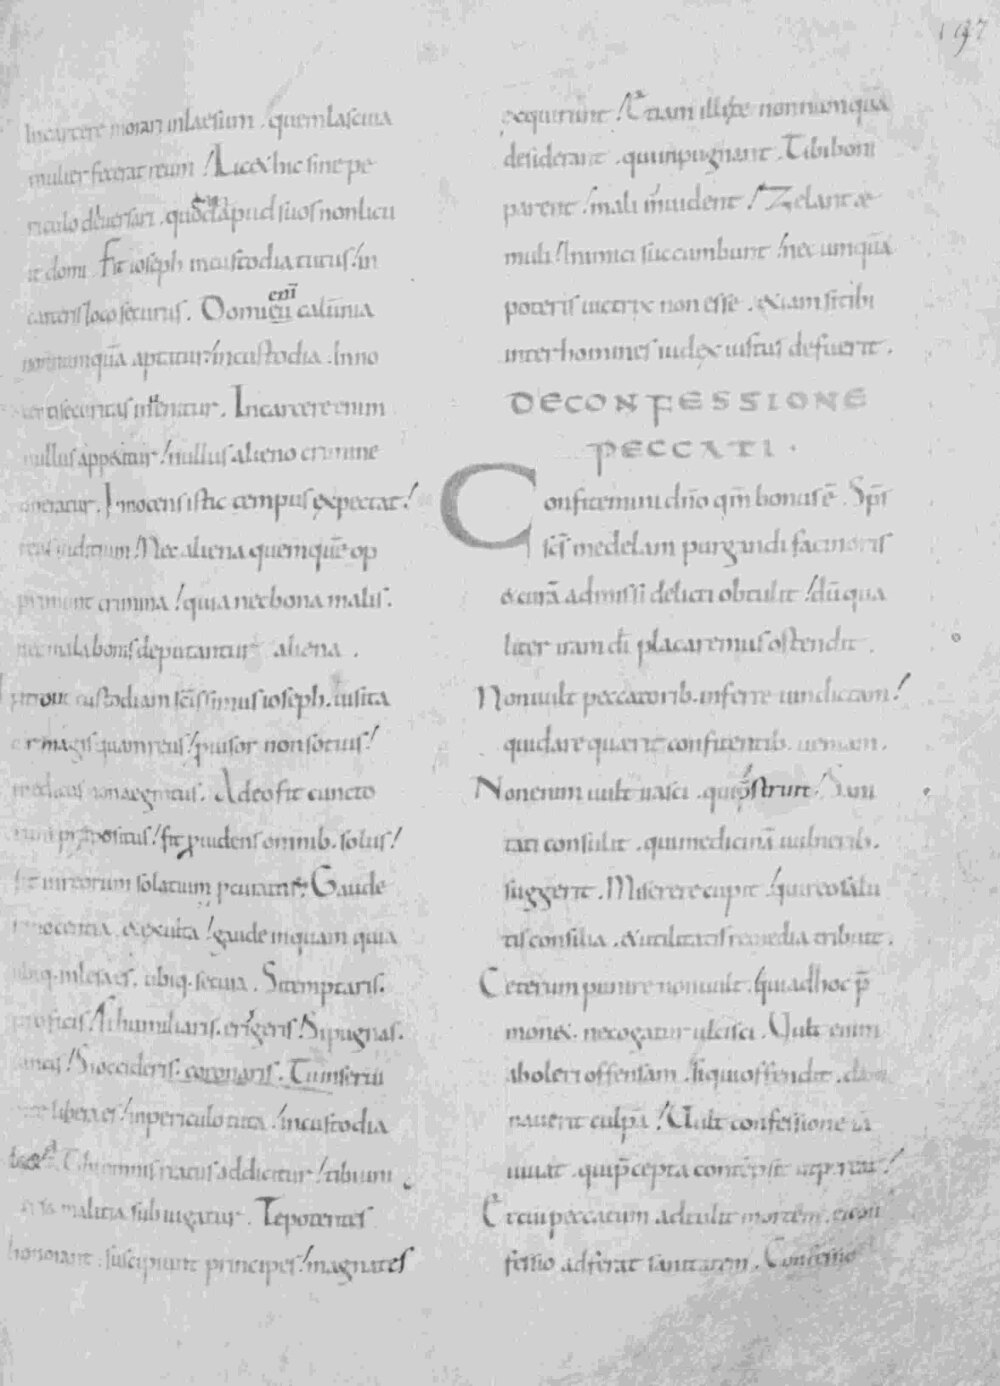 197
Incarcere morari inlaesum . quemlasciua
mulier fecerat reum / Licet hic sine pe
riculo deuersari . apud suos non licu
it domi . Fit ioseph incustodia tutus / in
carceris loco securus . Domi enī calūnia
nonnumquā aptitur / incustodia . Inno
securitas . Incarcere enim
nullus appetitur / nullus alieno crimine
oneratur . Innocens istic tempus expectat /
reus iuditium / Nec aliena quemquē op
primunt crimina / quia nec bona malis .
nec mala bonis deputantur aliena .
custodiam scīssimus ioseph . uisita
tor magis quam reus / puisor non sotius /
medicus non aegrotus . Adeo fit cuncto
rum ppositus / fit puidens omnib . solus /
fit inreorum solatium . Gaude
innocentia . & exulta / gaude inquam quia
ubiq . inlesa es . ubiq . secura . Sitemptaris .
proficis / Sihumiliaris . erigeris / Sipugnas .
uincis / Sioccideris . coronaris . Tuinserui
libera es / inpericulo tuta / incustodia
laeta . Tibi omnis reatus addicitur / tibi uni
malitia subiugatur . Tepotentes
honorant . suscipiunt principes / magnates
exquirunt / Etiam illi te nonnumquā
desiderant . qui inpugnant . Tibi boni
parent / mali inuident / Zelant ae
muli / Inimici succumbunt / nec umquā
poteris uictrix non esse . etiam si tibi
inter homines iudex iustus defuerit .
DECONFESSIONE
PECCATI .
Confitemini dn̄o qm̄ bonus ē . Spr̄
scs̄ medelam purgandi facinoris
& curā admissi delicti obtulit / dū qua
liter iram dī placaremus ostendit .
Nonuult peccatorib . inferre uindictam /
qui dare quaerit confitentib . ueniam .
Non enim uult irasci . quip̄strunt . Sani
tati consulit . qui medicinā uulnerib .
suggerit . Miserere cupit / qui reo salu
tis consilia . & utilitatis remedia tribuit .
Ceterum punire non uult / qui adhoc p̄
monet . ne cogatur ulcisci . Uult enim
aboleri offensam . siqui offendit . dam
nauerit culpā / Uult confessione iā
uiuat . qui p̄cepta contēpsit ut periret /
Et cui peccatum adtulit mortem . ei con
fessio adferat sanitatem . Confessio